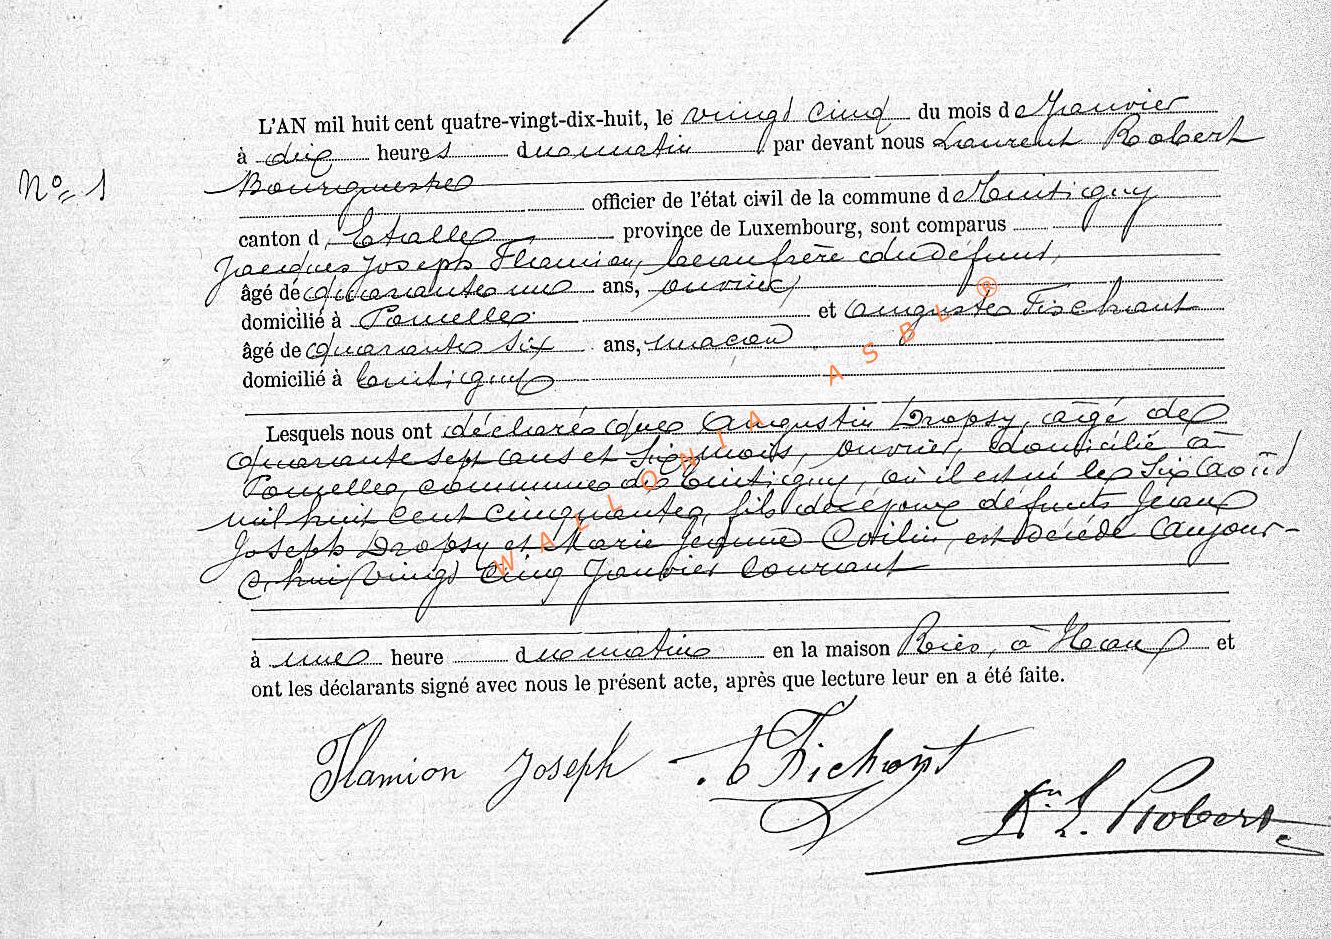 L'AN mil huit cent quatre-vingt-dix-huit, le vingt cinq du mois de Janvier
à dix heures du matin par devant nous Laurent Robert
Nº 1
Bourgmestre
officier de l'état civil de la commune de Tintigny
canton d'Etalle province de Luxembourg, sont comparus
Jacques Joseph Flamion, beau frère du défunt,
âgé de quarante une ans, ouvrier
domicilié à Poncelle et Auguste Fischant
âgé de quarante six ans, maçon
domicilié à Tintigny
Lesquels nous ont déclaré que Augustin Dropsy, âgé de
quarante sept ans et six mois, ouvrier, domicilié à
Poncelle, commune de Tintigny, où il est né le six Août
mil huit cent cinquante, fils des époux défunts Jean
Joseph Dropsy et Marie Jeanne, est décédé aujour-
d'hui vingt cinq Janvier courant
à une heure du matin en la maison à et
ont les déclarants signé avec nous le présent acte, après que lecture leur en a été faite.
Flamion Joseph Fichant
L. Robert
WALLONIA ASBL ®